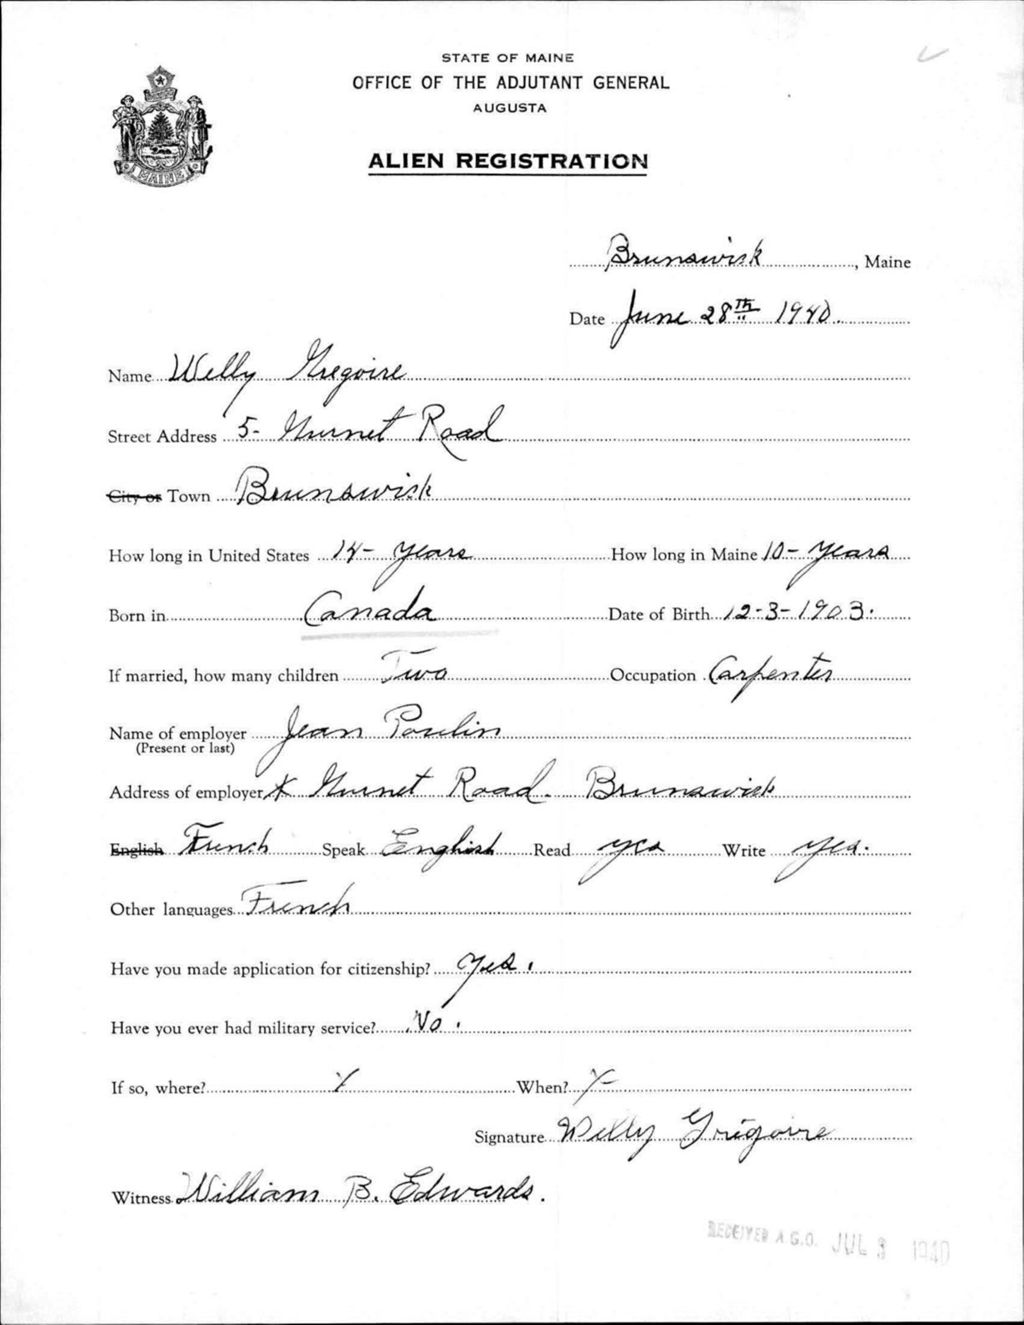 STATE OF MAINE
OFFICE OF THE ADJUTANT GENERAL
AUGUSTA
ALIEN REGISTRATION
MAINE
Brunswick, Maine
Date June 28th 1940
Name Welly Gregoire
Street Address 5- Gurnet Road
City or Town Brunswick
How long in United States 14- Years How long in Maine 10- Years
Born in Canada Date of Birth 12-3-1903.
If married, how many children Two Occupation Carpenter
Name of employer Jean Poulin
(Present or last)
Address of employer Gurnet Road. Brunswick
English French Speak English Read yes Write yes.
Other languages French
Have you made application for citizenship? Yes.
Have you ever had military service? No.
If so, where? X When? X
Signature Welly Grégoire
Witness William B. Edwards.
RECEIVED A.G.O. JUL 3 1940